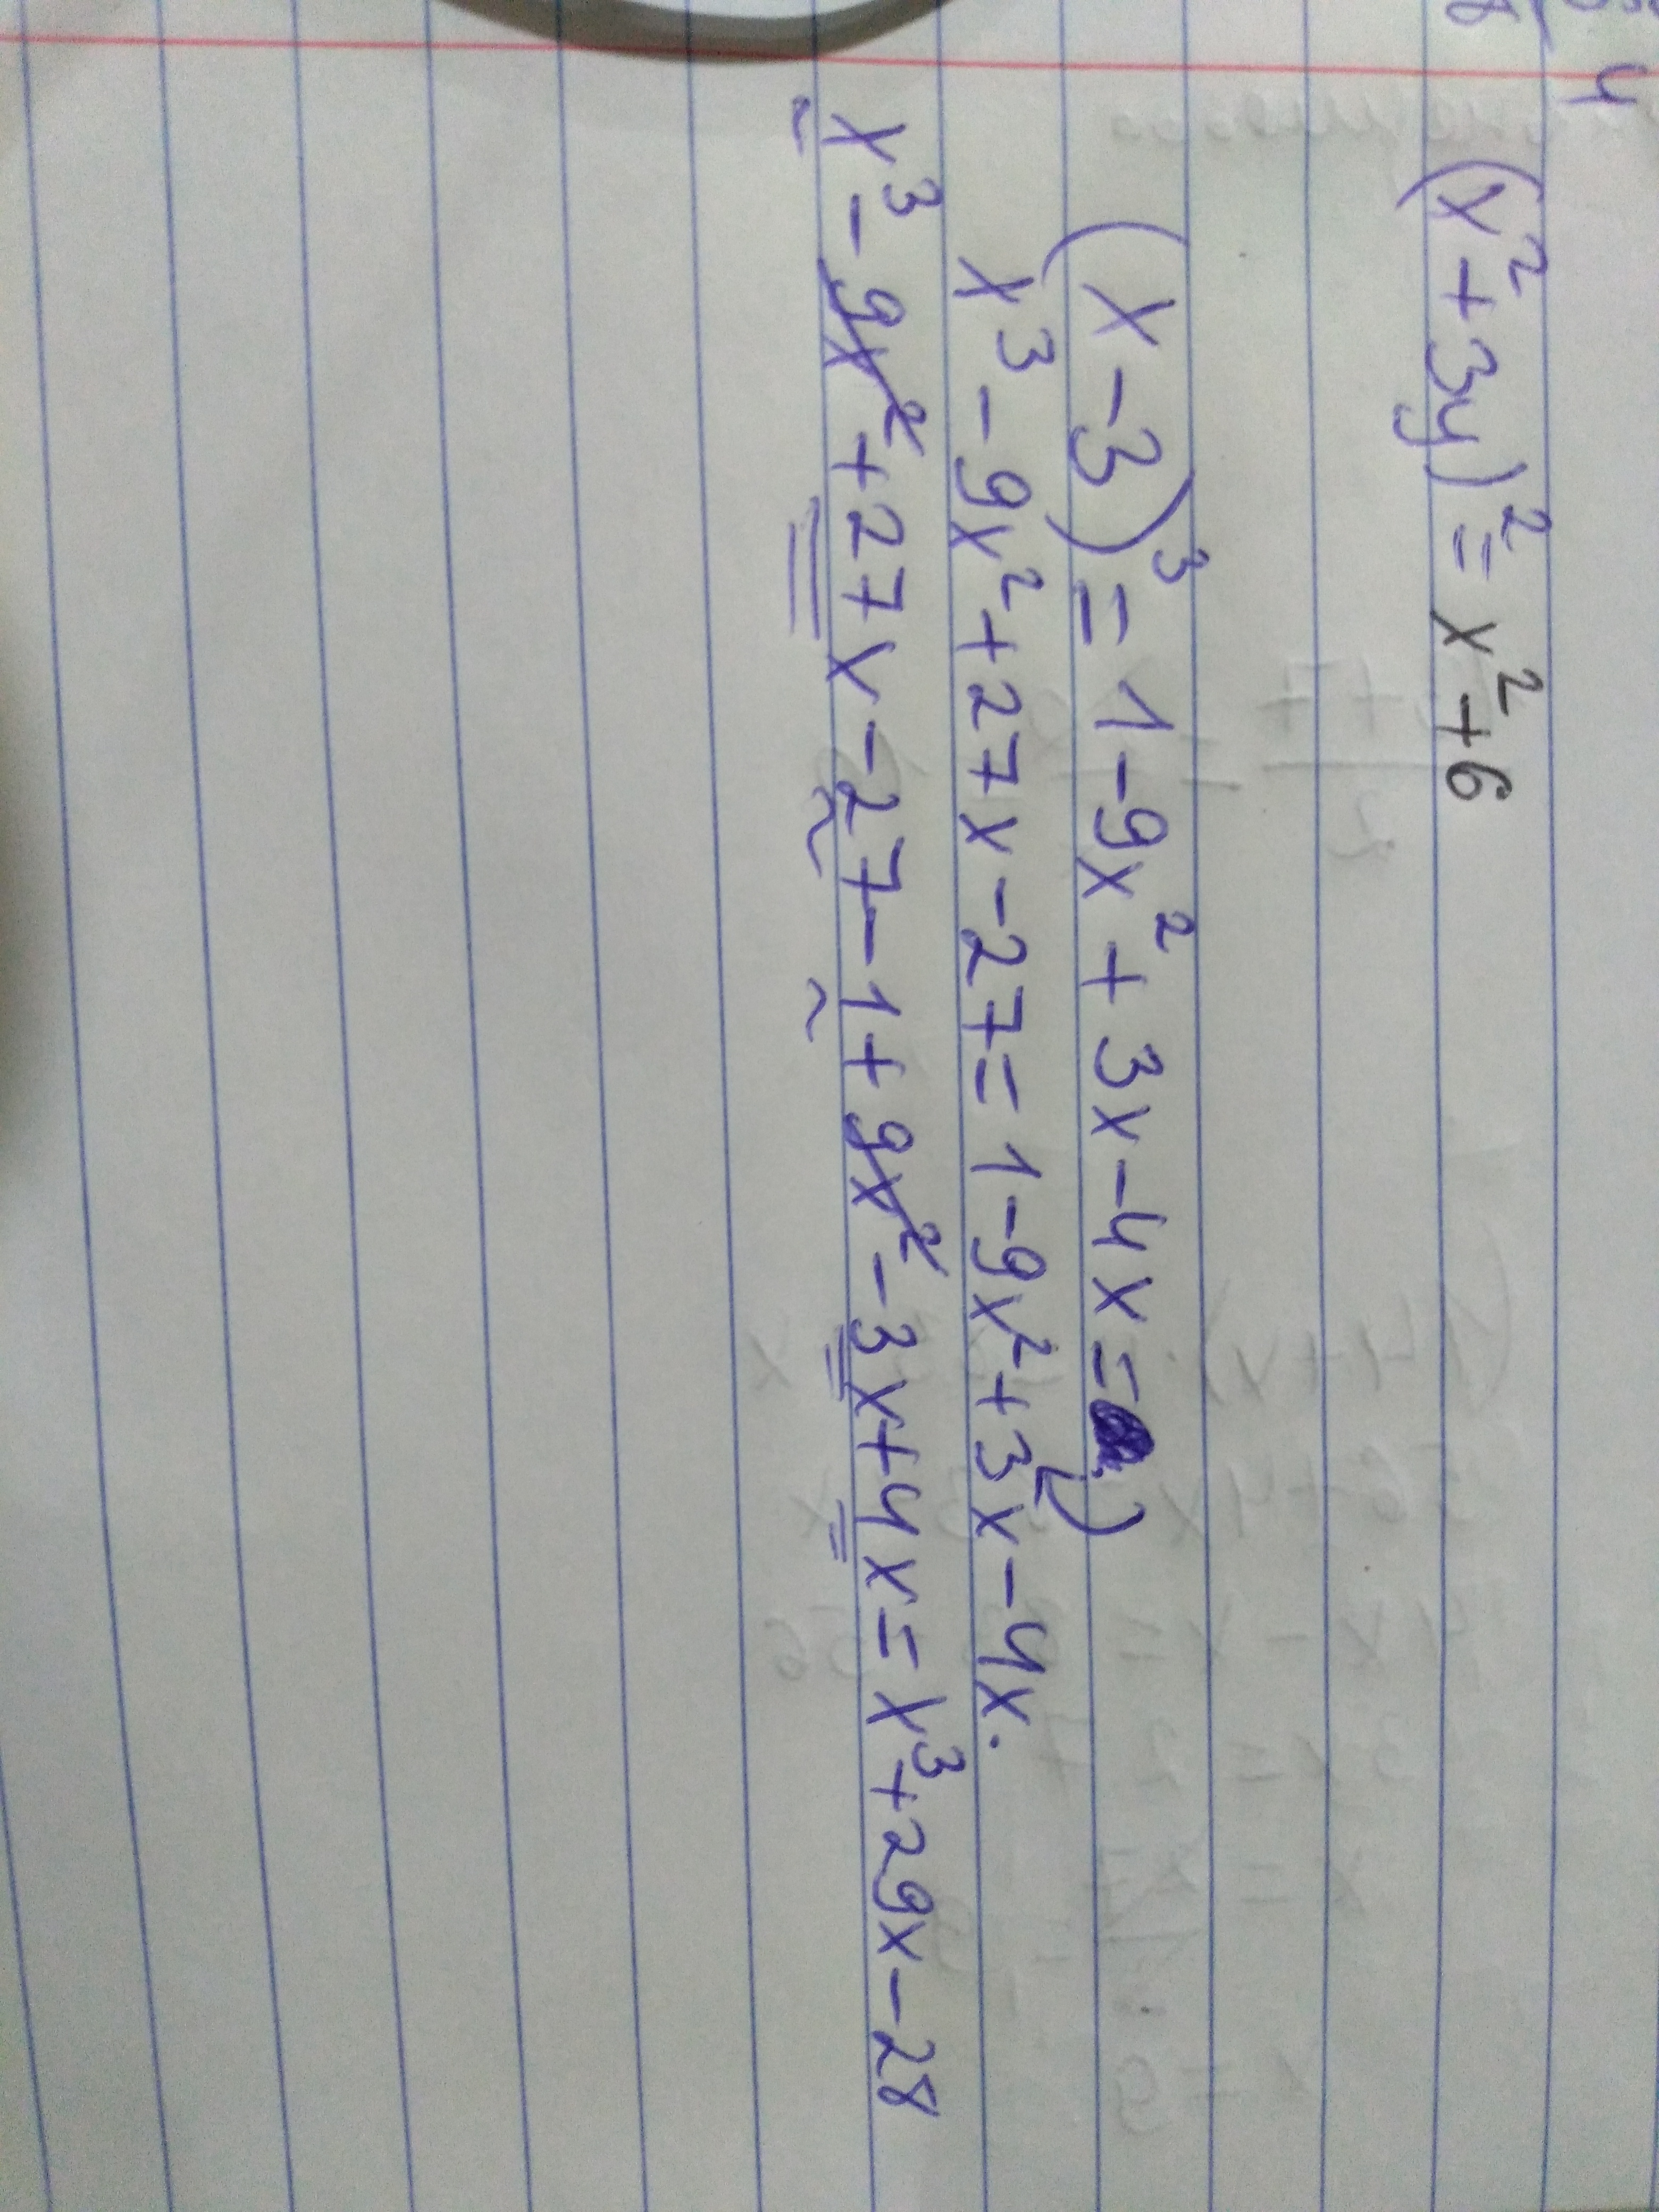 (x² + 3y)² = x² + 6
(x - 3)³ = 1 - 9x² + 3x - 4x =
x³ - 9x² + 27x - 27 = 1 - 9x² + 3x - 4x.
x³ - 9x² + 27x - 27 - 1 + 9x² - 3x + 4x = x³ + 29x - 28